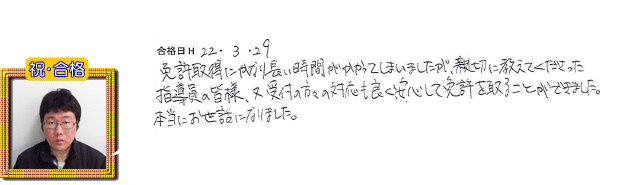 合格日 H 22.3.29
祝・合格
免許取得にかなり長い時間がかかってしまいましたが、親切に教えてくださった
指導員の皆様、又受付の方々の対応も良く安心して免許を取ることができました。
本当にお世話になりました。